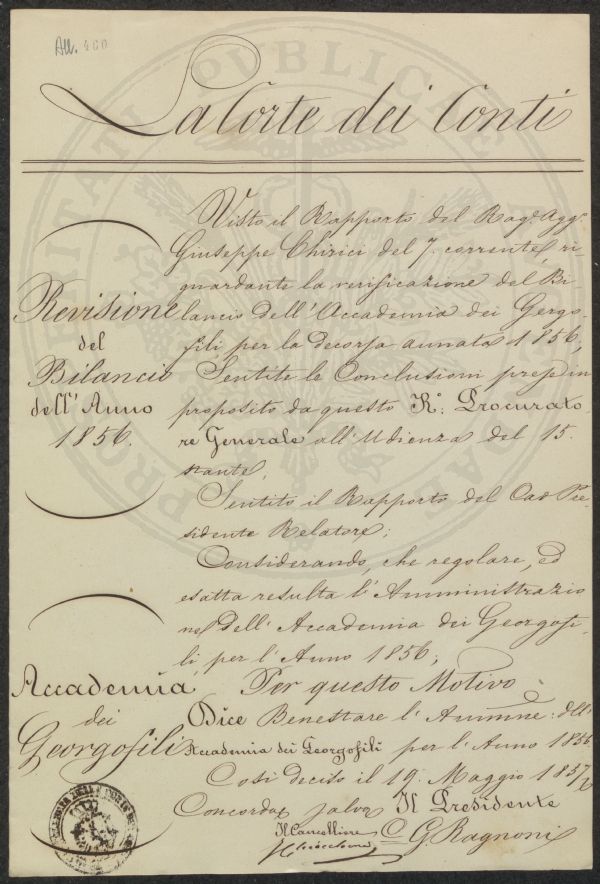 All. 400
La Corte dei Conti
Visto il Rapporto del Rag.e Agg.o
Giuseppe Chirici del 7. corrente, ri-
guardante la verificazione del Bi-
lancio dell'Accademia dei Gergo-
fili per la decorsa annata 1856;
Sentite le Conclusioni prese in
proposito da questo R.o Procurato-
re Generale all'Udienza del 15.
stante,
Sentito il Rapporto del Cav Pre-
sidente Relatore;
Considerando, che regolare, ed
esatta resulta l'Amministrazio
ne dell'Accademia dei Georgofi-
li, per l'Anno 1856;
Per questo Motivo
Dice Benestare l'Ammne: dell'
Accademia dei Georgofili per l'Anno 1856
Così deciso il 19. Maggio 1857.
Revisione
del
Bilancio
dell'Anno
1856.
Accademia
dei
Georgofili
Concorda salvo Il Presidente
Il Cancelliere C. G. Ragnoni
PROSPERITATI PUBLICAE AUGENDAE